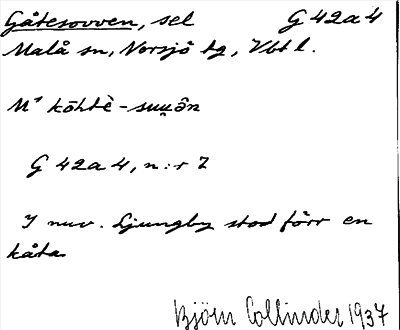 Gåtesovven, sel G 42a4
Malå sn, Norsjö tg, Vbt l.
M¹ kōhtè-suu̯ōn
G 42a4, n:r 7
I nuv. Ljungby stod förr en
kåta.
Björn Collinder 1937